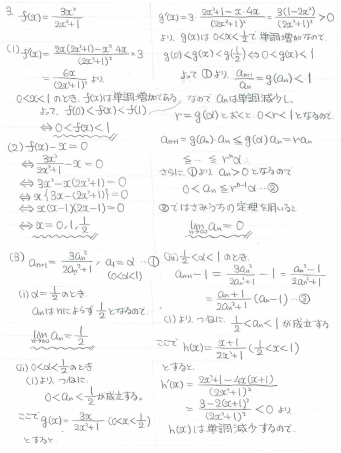 3. f(x) = 3x²/(2x²+1)
(1) f'(x) = (2x(2x²+1) - x²·4x)/(2x²+1)² × 3
= 6x/(2x²+1)² より、
0<x<1のとき、f(x)は単調増加である。
よって、f(0)<f(x)<f(1)
⇔ 0<f(x)<1
(2) f(x) - x = 0
⇔ 3x²/(2x²+1) - x = 0
⇔ 3x² - x(2x²+1) = 0
⇔ x{3x - (2x²+1)} = 0
⇔ x(x-1)(2x-1) = 0
⇔ x = 0, 1, 1/2
(3) aₙ₊₁ = 3aₙ²/(2aₙ²+1), a₁ = α …①
(0<α<1)
(i) α = 1/2 のとき
aₙはnによらず 1/2 となるので
lim[n→∞] aₙ = 1/2
(ii) 0<α<1/2 のとき
(1)より、つねに
0<aₙ<1/2 が成立する。
ここで g(x) = 3x/(2x²+1) (0<x<1/2)
とすると、
g'(x) = 3·(2x²+1 - x·4x)/(2x²+1)² = 3(1-2x²)/(2x²+1)² > 0
より、g(x)は 0<x<1/2 で単調増加なので
g(0)<g(x)<g(1/2) ⇔ 0<g(x)<1
よって①より、aₙ₊₁/aₙ = g(aₙ) < 1
なので aₙは単調減少し、
r = g(α) とおくと、0<r<1となるので
aₙ₊₁ = g(aₙ)·aₙ ≦ g(α)aₙ = raₙ
≦ … ≦ rⁿα
さらに①より aₙ>0 となるので
0<aₙ≦rⁿ⁻¹α …②
②ではさみうちの定理を用いると
lim[n→∞] aₙ = 0
(iii) 1/2<α<1 のとき
aₙ₊₁ - 1 = 3aₙ²/(2aₙ²+1) - 1 = (aₙ²-1)/(2aₙ²+1)
= (aₙ+1)/(2aₙ²+1) (aₙ-1) …③
(1)より、つねに 1/2<aₙ<1 が成立する
ここで h(x) = (x+1)/(2x²+1) (1/2<x<1)
とすると、
h'(x) = (2x²+1 - 4x(x+1))/(2x²+1)²
= (3-2(x+1)²)/(2x²+1)² < 0 より
h(x)は単調減少するので、